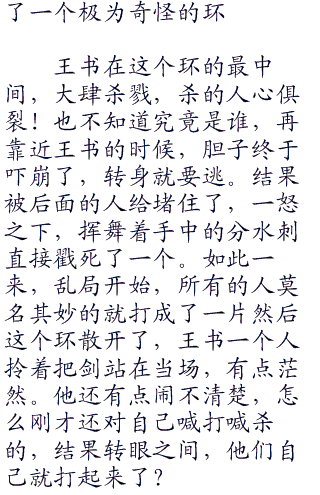 了一个极为奇怪的环
王书在这个环的最中
间，大肆杀戮，杀的人心俱
裂！也不知道究竟是谁，再
靠近王书的时候，胆子终于
吓崩了，转身就要逃。结果
被后面的人给堵住了，一怒
之下，挥舞着手中的分水刺
直接戳死了一个。如此一
来，乱局开始，所有的人莫
名其妙的就打成了一片然后
这个环散开了，王书一个人
拎着把剑站在当场，有点茫
然。他还有点闹不清楚，怎
么刚才还对自己喊打喊杀
的，结果转眼之间，他们自
己就打起来了？